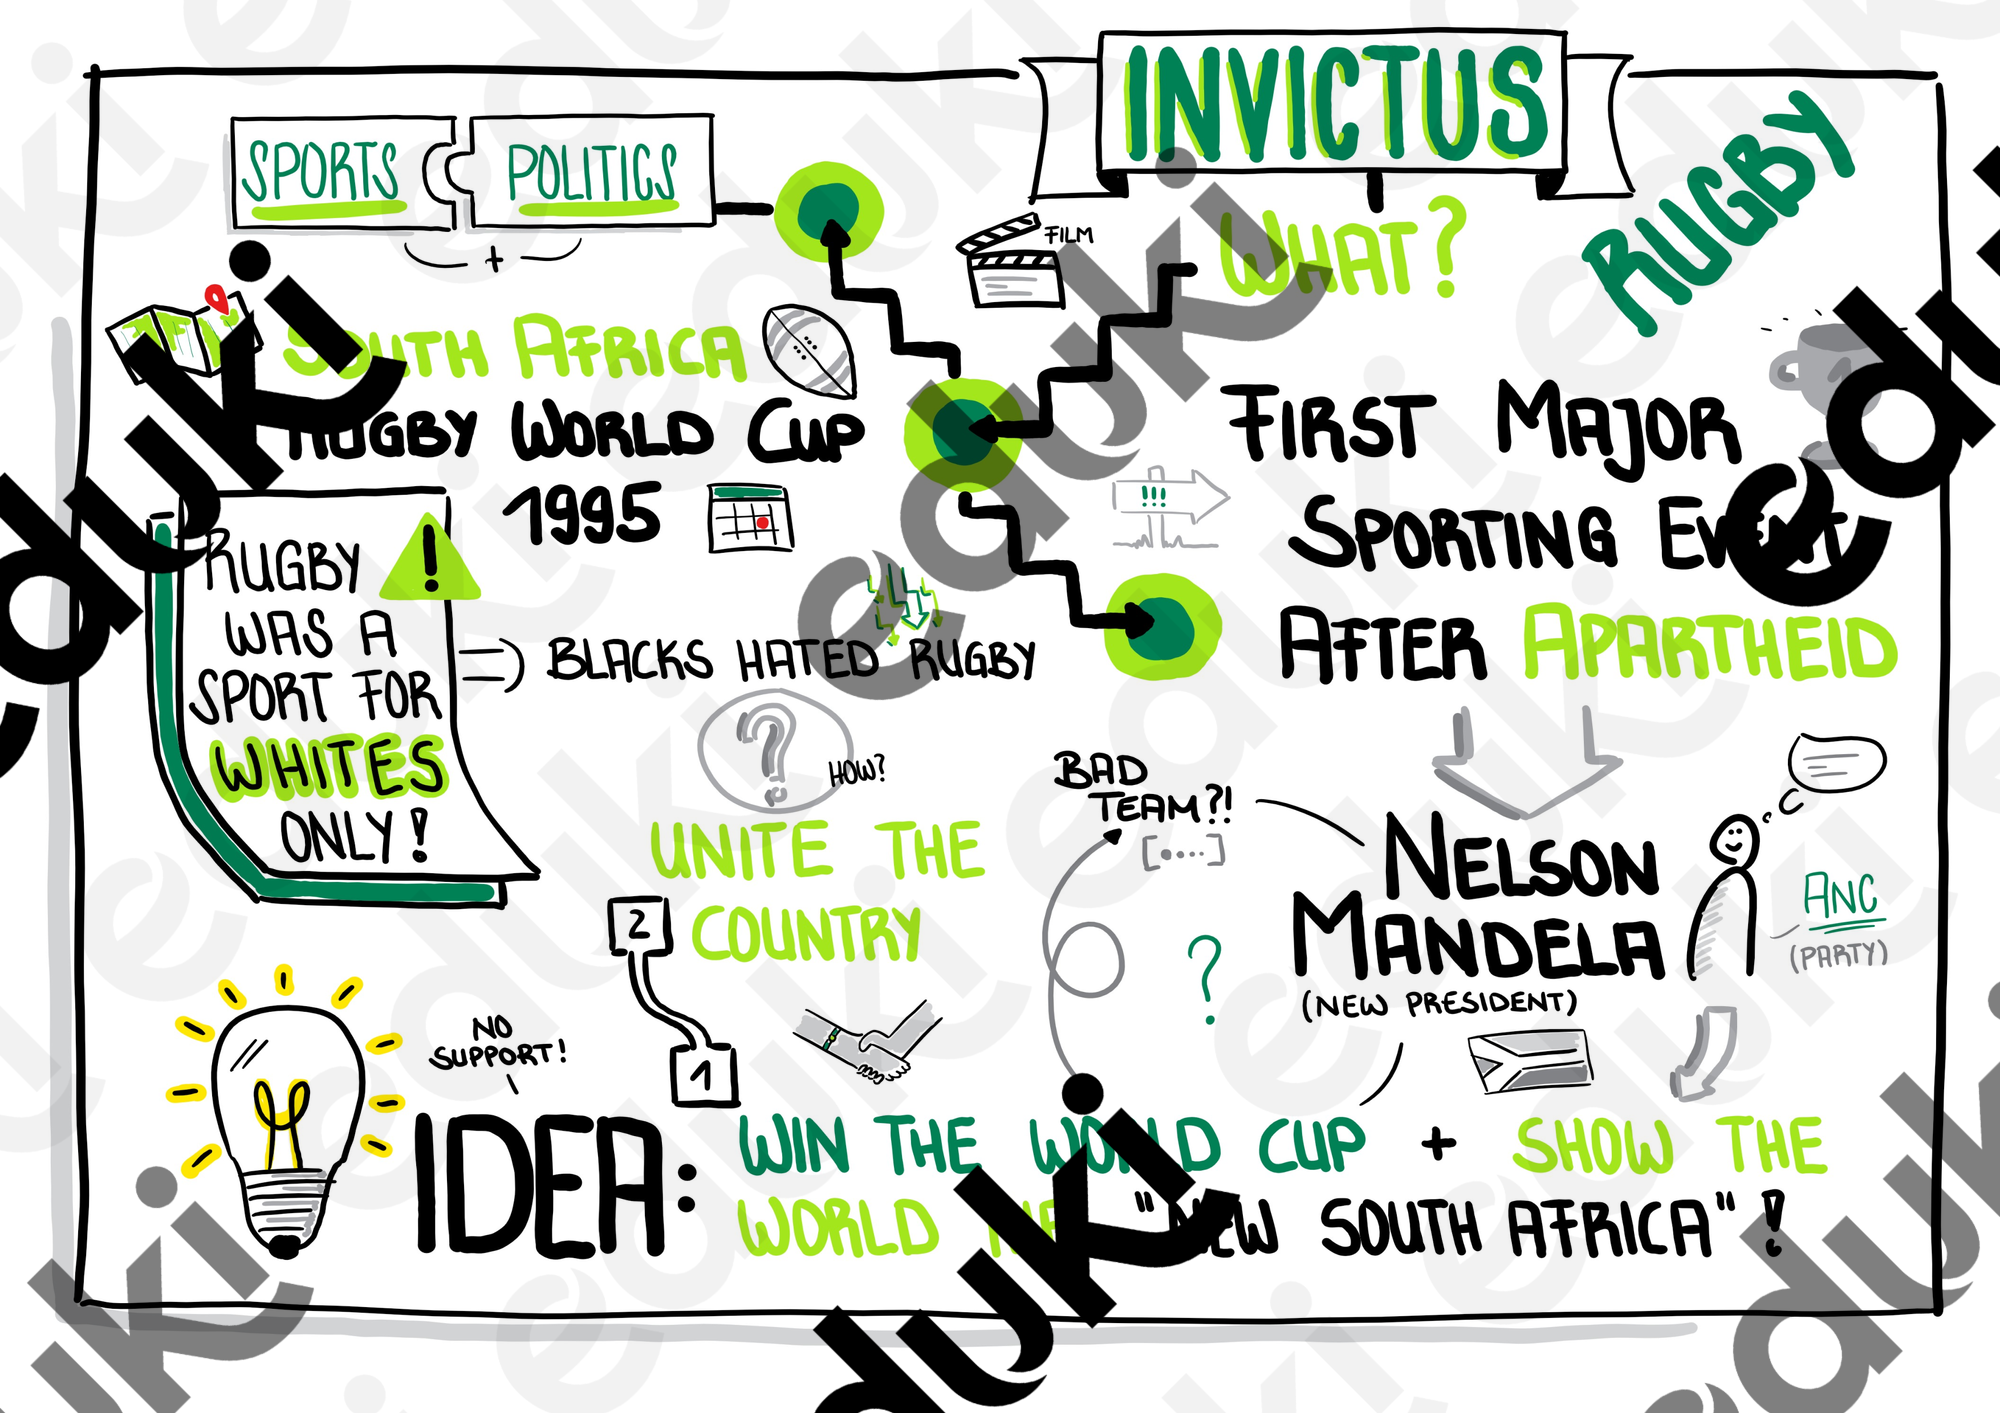 INVICTUS
RUGBY
SPORTS
POLITICS
+
FILM
WHAT?
SOUTH AFRICA
RUGBY WORLD CUP
1995
FIRST MAJOR
SPORTING EVENT
AFTER APARTHEID
!!!
RUGBY
!
WAS A
SPORT FOR
WHITES
ONLY!
=) BLACKS HATED RUGBY
?
HOW?
UNITE THE
COUNTRY
2
1
BAD
TEAM?!
[....]
?
NELSON
MANDELA
(NEW PRESIDENT)
ANC
(PARTY)
NO
SUPPORT!
IDEA:
WIN THE WORLD CUP + SHOW THE
WORLD "NEW SOUTH AFRICA"!
eduki
eduki
eduki
eduki
eduki
eduki